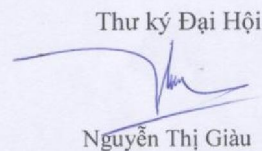 Thư ký Đại Hội
Nguyễn Thị Giàu